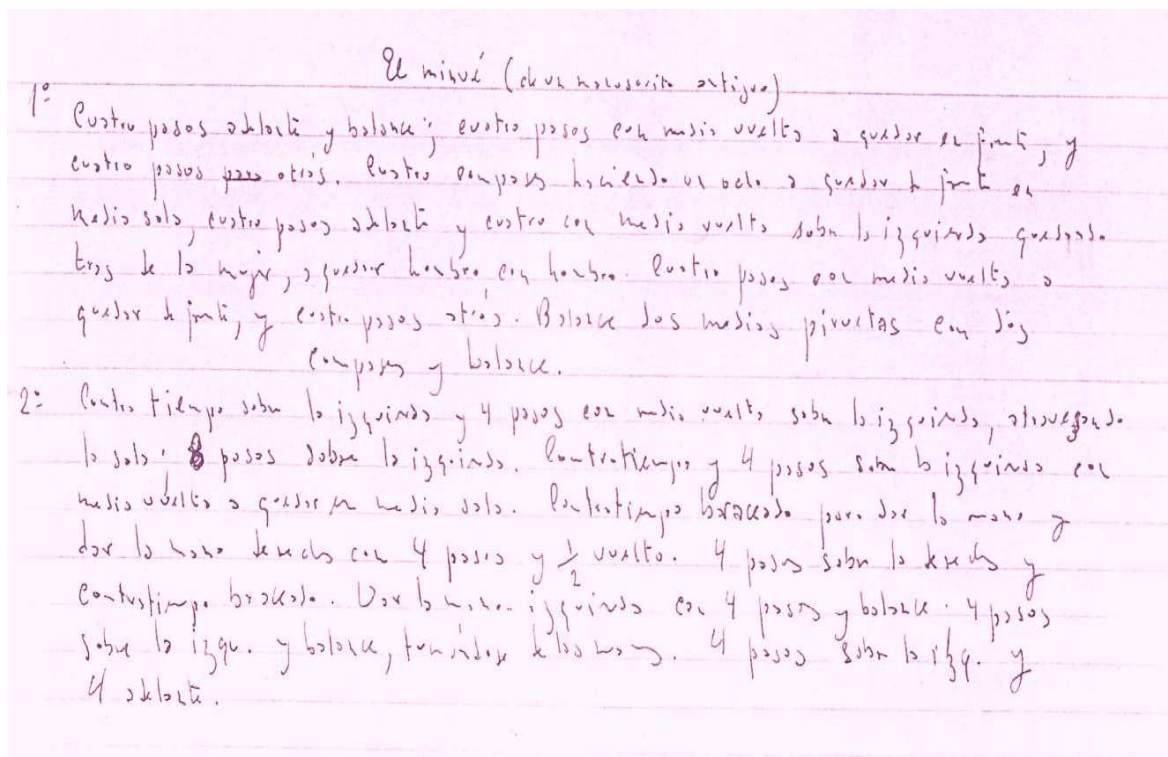 El minué (de un manuscrito antiguo)
1º
Cuatro pasos adelante y balance; cuatro pasos con media vuelta a quedar en frente, y
cuatro pasos para atrás. Cuatro compases haciendo un ocho a quedar de frente en
media sala, cuatro pasos adelante y cuatro con media vuelta sobre la izquierda quedando
tras de la mujer, a quedar hombro con hombro. Cuatro pasos con media vuelta a
quedar de frente, y cuatro pasos atrás. Balance dos medias piruetas con dos
compases y balance.
2º Contra tiempo sobre la izquierda y 4 pasos con media vuelta sobre la izquierda, atravesando
la sala. 8 pasos sobre la izquierda. Contratiempo y 4 pasos sobre la izquierda con
media vuelta a quedar en media sala. Contratiempo braceado para dar la mano y
dar la mano derecha con 4 pasos y 1/2 vuelta. 4 pasos sobre la derecha y
contratiempo braceado. Dar la mano izquierda con 4 pasos y balance. 4 pasos
sobre la izqu. y balance, tomándose de las manos. 4 pasos sobre la izq. y
4 adelante.